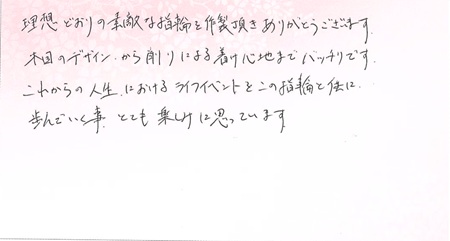 理想どおりの素敵な指輪を作製頂きありがとうございます。
木目のデザインから削りによる着け心地までバッチリです。
これからの人生におけるライフイベントをこの指輪と供に
歩んでいく事、とても楽しみに思っています